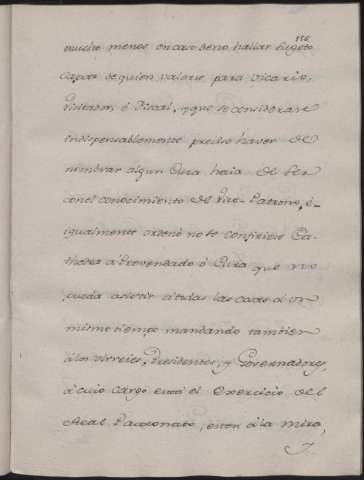 156
mucho menos en caso de no hallar sugeto
Capaz de quien valerse para Vicario,
Visitador, ó Fiscal, y que se considerare
indispensablemente preciso haver de
nombrar algun Cura haia de ser
con el conocimiento del Vice-Patrono, é
igualmente ordenó no se confiriese Ca-
thedra á Prevendado ó Cura que no
pueda asistir á todas las cosas á un
mismo tiempo mandando tambien
á los Virreies, Presidentes, y Governadores,
á cuio cargo está el Exercicio del
Real Patronato, esten á la mira,